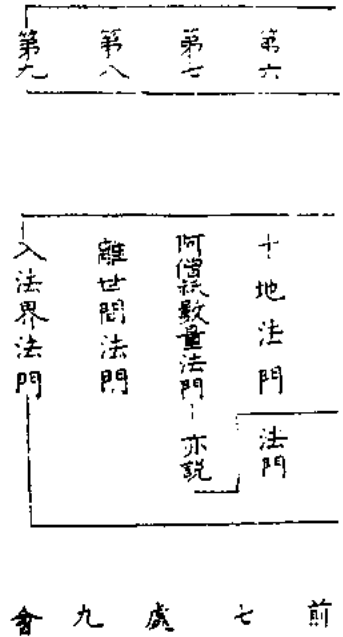 第六
第七
第八
第九
十地法門
法門
阿僧祇數量法門
亦説
離世間法門
入法界法門
前七處九會